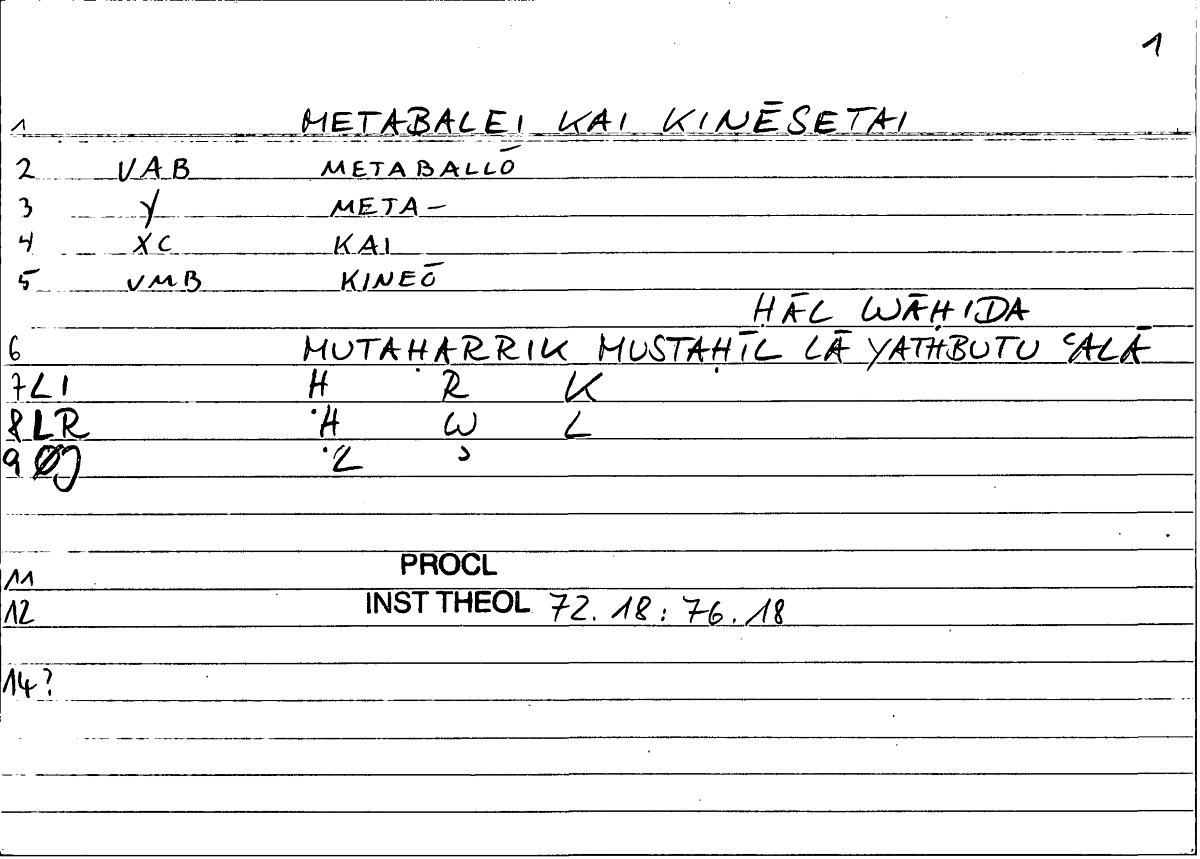 1
1 METABALEI KAI KINĒSETAI
2 VAB METABALLŌ
3 Y META-
4 XC KAI
5 VMB KINEŌ
ḤĀL WĀḤIDA
6 MUTAḤARRIK MUSTAḤĪL LĀ YATHBUTU ʿALĀ
7 LI H R K
8 LR ·H W L
9 ·L ʾ
11 PROCL
12 INST THEOL 72. 18: 76. 18
14?